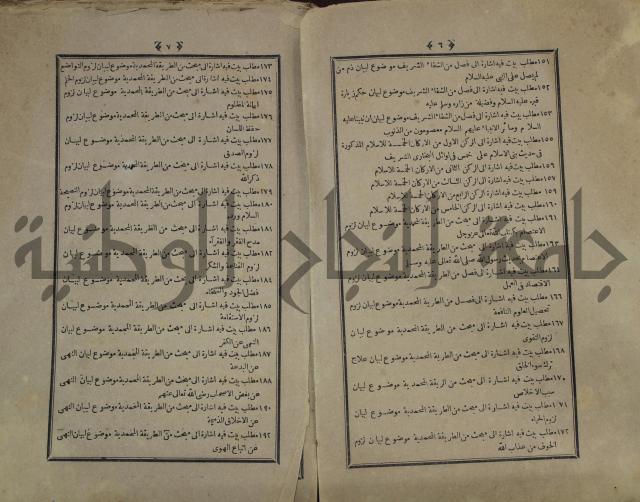 ﴿ ٦ ﴾
١٥١ مطلب بيت فيه اشارة الى فصل من الشفاء الشريف موضوع لبيان ذم من
لم يصل على النبى عليه السلام
١٥٢ مطلب بيت فيه اشارة الى فصل من الشفاء الشريف موضوع لبيان حكم زيارة
قبره عليه السلام وفضيلة من زاره وسلم عليه
١٥٣ مطلب بيت فيه اشارة الى فصل من الشفاء الشريف موضوع لبيان ان نبينا عليه
السلام وسائر الانبياء عليهم السلام معصومون من الذنوب
١٥٥ مطلب بيت فيه اشارة الى الركن الاول من الاركان الخمسة للاسلام المذكورة
فى حديث بنى الاسلام على خمس فى اوائل البخارى الشريف
١٥٦ مطلب بيت فيه اشارة الى الركن الثانى من الاركان الخمسة للاسلام
١٥٧ مطلب بيت فيه اشارة الى الركن الثالث من الاركان الخمسة للاسلام
١٥٩ مطلب بيت فيه اشارة الى الركن الرابع من الاركان الخمسة للاسلام
١٦٠ مطلب بيت فيه اشارة الى الركن الخامس من الاركان الخمسة للاسلام
١٦١ مطلب بيت فيه اشارة الى مبحث من الطريقة المحمدية موضوع لبيان لزوم
الاعتصام بكتاب الله تعالى عز وجل
١٦٣ مطلب بيت فيه اشارة الى مبحث من الطريقة المحمدية موضوع لبيان لزوم
الاعتصام بسنة رسول الله صلى الله تعالى عليه وسلم
١٦٤ مطلب بيت فيه اشارة الى فصل من الطريقة المحمدية موضوع لبيان لزوم
الاقتصاد فى العمل
١٦٦ مطلب بيت فيه اشارة الى فصل من الطريقة المحمدية موضوع لبيان لزوم
تحصيل العلوم النافعة
١٦٧ مطلب بيت فيه اشارة الى مبحث من الطريقة المحمدية موضوع لبيان
لزوم التقوى
١٦٨ مطلب بيت فيه اشارة الى مبحث من الطريقة المحمدية موضوع لبيان علاج
ترك سوء الخلق
١٧٠ مطلب بيت فيه اشارة الى مبحث من الطريقة المحمدية موضوع لبيان
سبب الاخلاص
١٧١ مطلب بيت فيه اشارة الى مبحث من الطريقة المحمدية موضوع لبيان
لزوم الحياء
١٧٢ مطلب بيت فيه اشارة الى مبحث من الطريقة المحمدية موضوع لبيان لزوم
الخوف من عذاب الله
﴿ ٧ ﴾
١٧٣ مطلب بيت فيه اشارة الى مبحث من الطريقة المحمدية موضوع لبيان لزوم التواضع
١٧٤ مطلب بيت فيه اشارة الى مبحث من الطريقة المحمدية موضوع لبيان لزوم الحلم
١٧٥ مطلب بيت فيه اشارة الى مبحث من الطريقة المحمدية موضوع لبيان لزوم
اعانة المظلوم
١٧٦ مطلب بيت فيه اشارة الى مبحث من الطريقة المحمدية موضوع لبيان لزوم
حفظ اللسان
١٧٧ مطلب بيت فيه اشارة الى مبحث من الطريقة المحمدية موضوع لبيان
لزوم الصدق
١٧٨ مطلب بيت فيه اشارة الى مبحث من الطريقة المحمدية موضوع لبيان لزوم
ذكر الله
١٧٩ مطلب بيت فيه اشارة الى مبحث من الطريقة المحمدية موضوع لبيان لزوم النصيحة
١٨٠ مطلب بيت فيه اشارة الى مبحث من الطريقة المحمدية موضوع لبيان لزوم
السلام ورده
١٨١ مطلب بيت فيه اشارة الى مبحث من الطريقة المحمدية موضوع لبيان
مدح الفقر والفقراء
١٨٢ مطلب بيت فيه اشارة الى مبحث من الطريقة المحمدية موضوع لبيان
لزوم القناعة والشكر
١٨٤ مطلب بيت فيه اشارة الى مبحث من الطريقة المحمدية موضوع لبيان
فضل الجود والسخاء
١٨٥ مطلب بيت فيه اشارة الى مبحث من الطريقة المحمدية موضوع لبيان
لزوم الاستقامة
١٨٦ مطلب بيت فيه اشارة الى مبحث من الطريقة المحمدية موضوع لبيان
النهى عن الكفر
١٨٧ مطلب بيت فيه اشارة الى مبحث من الطريقة المحمدية موضوع لبيان النهى
عن البدعة
١٨٨ مطلب بيت فيه اشارة الى مبحث من الطريقة المحمدية موضوع لبيان النهى
عن بغض الاصحاب رضى الله تعالى عنهم
١٩٠ مطلب بيت فيه اشارة الى مبحث من الطريقة المحمدية موضوع لبيان النهى
عن الاخلاق الذميمة
١٩٢ مطلب بيت فيه اشارة الى مبحث من الطريقة المحمدية موضوع لبيان النهى
عن اتباع الهوى
جامعة النجاح الوطنية